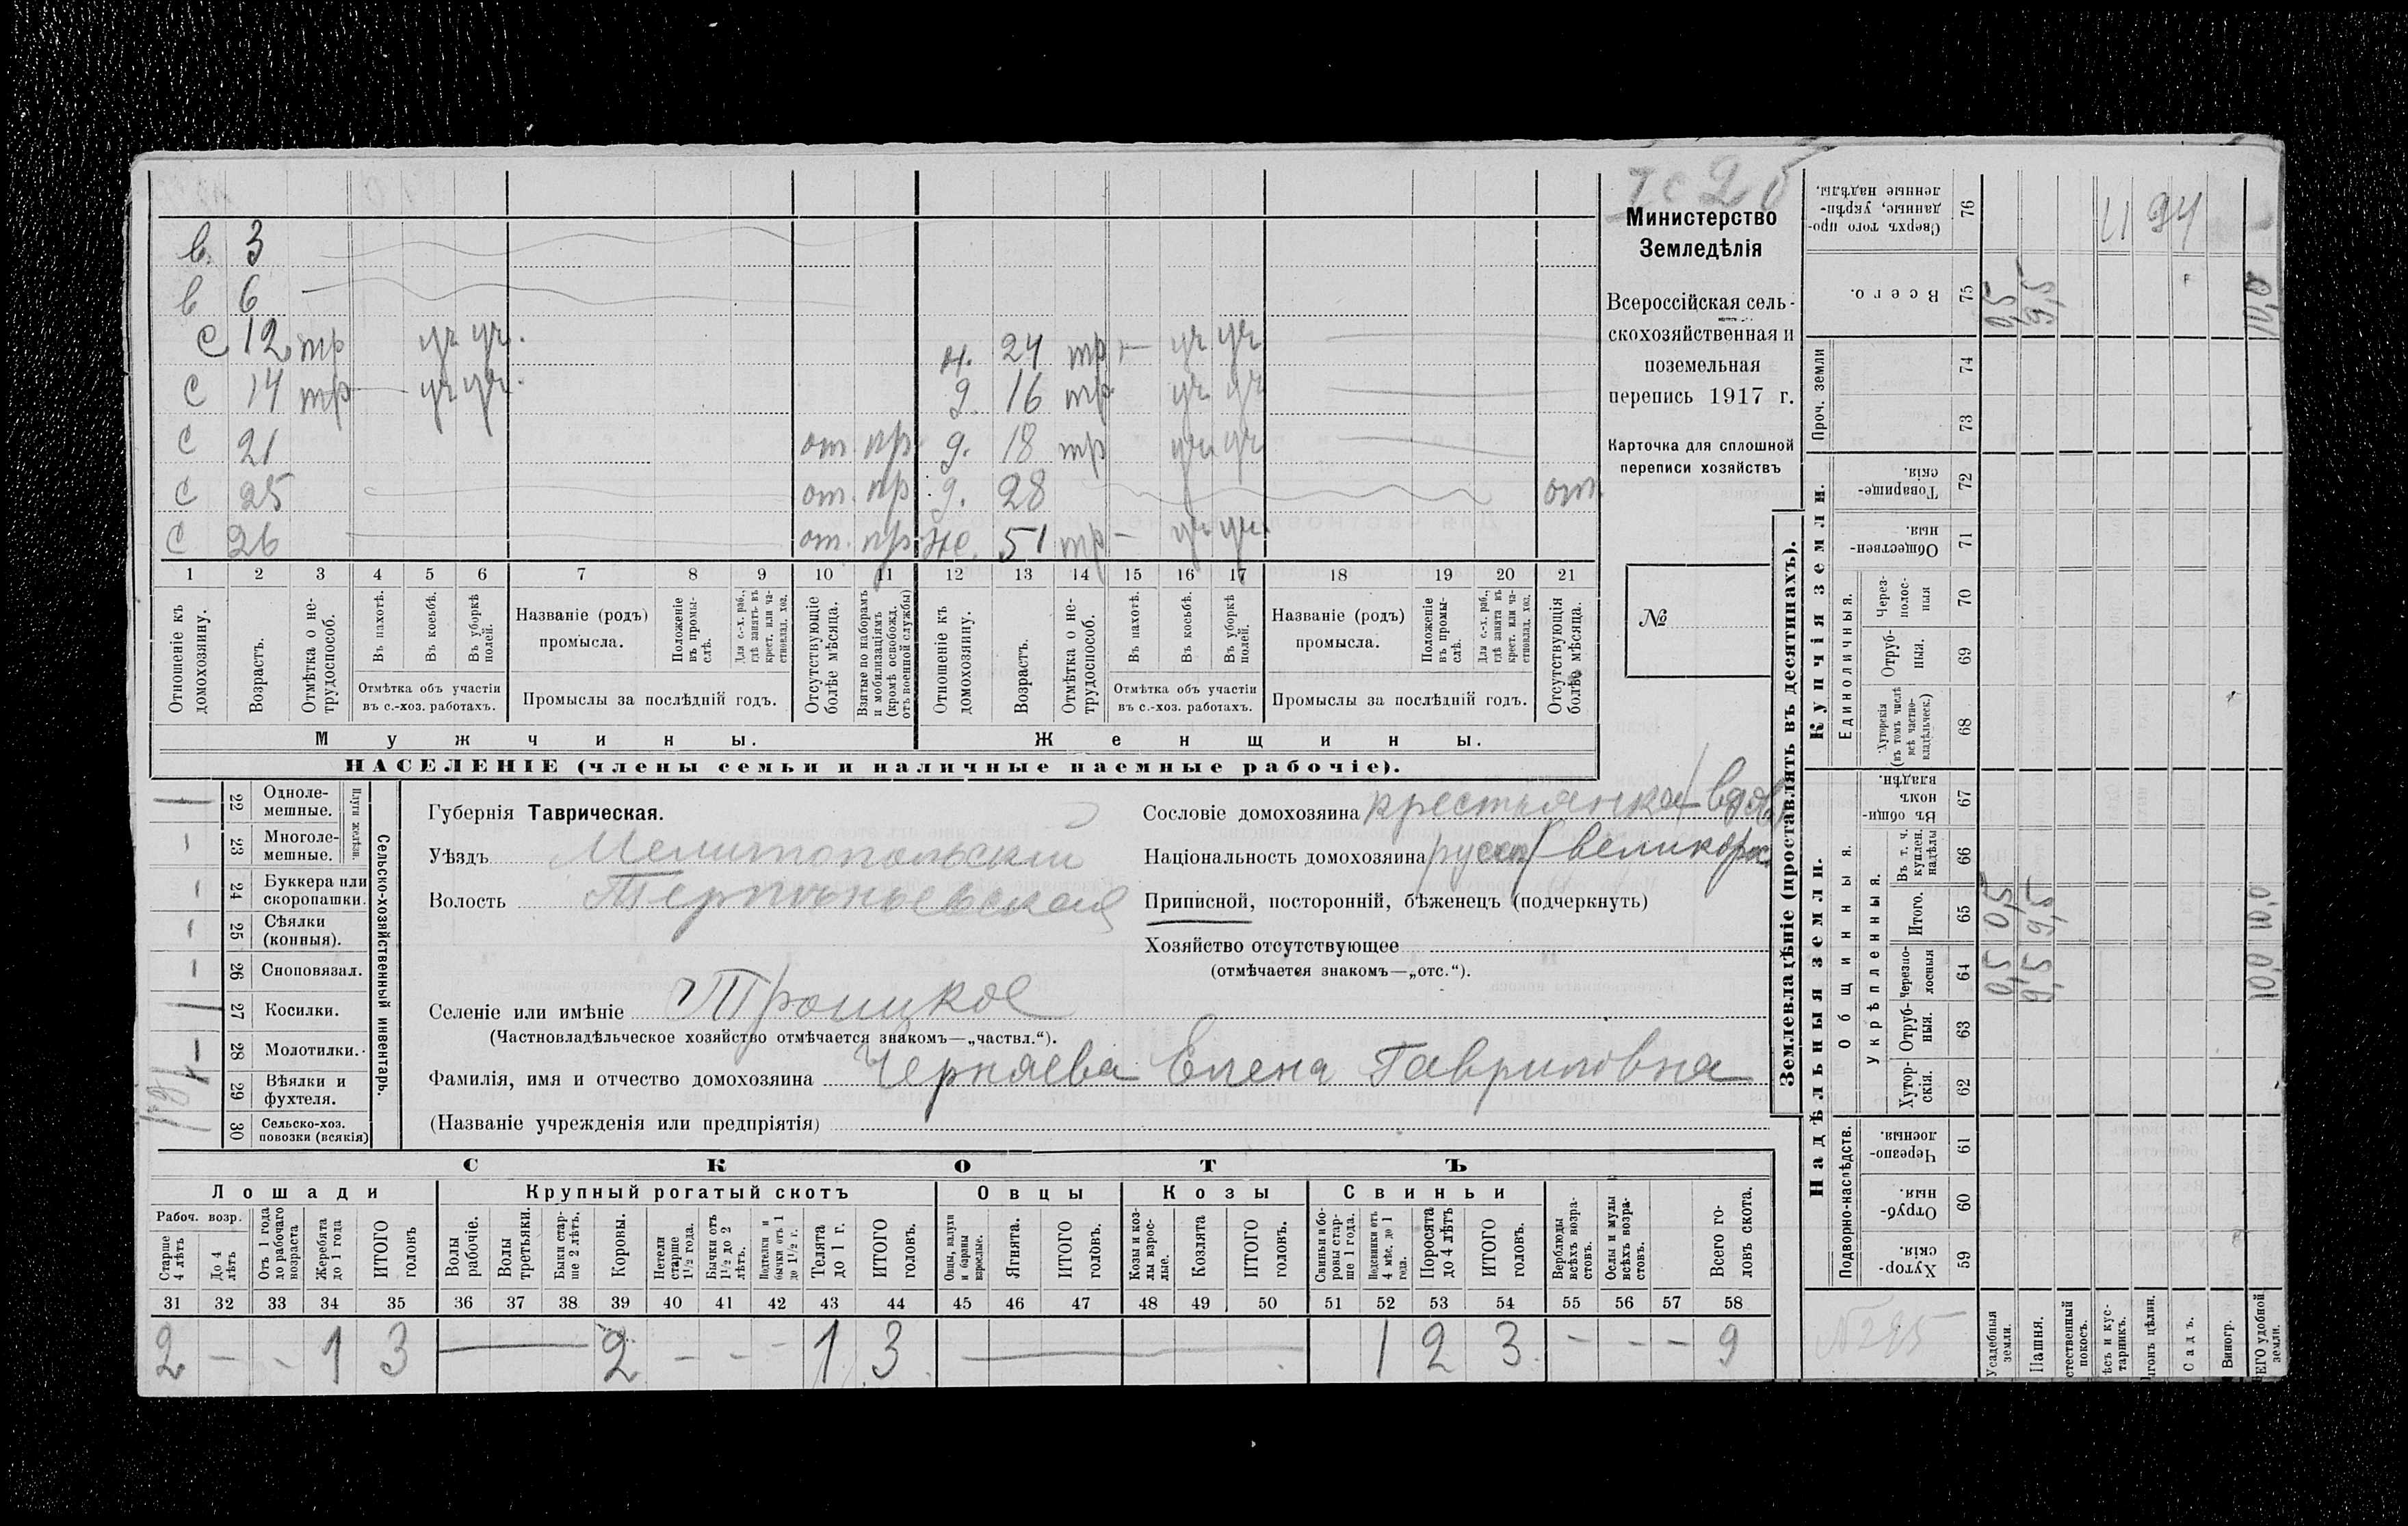 в. 3
в 6
с 12 тр уч уч. н. 24 тр – уч уч
с 14 тр – уч уч. д. 16 тр уч уч
с 21 от пр. д. 18 тр уч уч
с 25 от. пр д. 28 от.
с 26 от. пр. же. 51 тр – уч уч.
1 2 3 4 5 6 7 8 9 10 11 12 13 14 15 16 17 18 19 20 21
Отношеніе къ домохозяину.
Возрастъ.
Отмѣтка о не-трудоспособ.
Въ пахотѣ.
Въ косьбѣ.
Въ уборкѣ полей.
Отмѣтка объ участіи
въ с.-хоз. работахъ.
Названіе (родъ)
промысла.
Положеніе въ промы-слѣ.
Для с.-х. раб., гдѣ занятъ въ крест. или ча-стновлад. хоз.
Промыслы за послѣдній годъ.
Отсутствующіе болѣе мѣсяца.
Взятые по наборамъ и мобилизаціямъ (кромѣ освобожд. отъ военной службы)
Отношеніе къ домохозяину.
Возрастъ.
Отмѣтка о не-трудоспособ.
Въ пахотѣ.
Въ косьбѣ.
Въ уборкѣ полей.
Отмѣтка объ участіи
въ с.-хоз. работахъ.
Названіе (родъ)
промысла.
Положеніе въ промы-слѣ.
Для с.-х. раб., гдѣ занятъ въ крест. или ча-стновлад. хоз.
Промыслы за послѣдній годъ.
Отсутствующія болѣе мѣсяца.
Мужчины. Женщины.
НАСЕЛЕНІЕ (члены семьи и наличные наемные рабочіе).
Министерство
Земледѣлія
Всероссійская сель-
скохозяйственная и
поземельная
перепись 1917 г.
Карточка для сплошной
переписи хозяйствъ
№
Сельско-хозяйственный инвентарь.
Плуги желѣзн.
22 Одноле-мешные. 1
23 Многоле-мешные. –
24 Буккера или скоропашки. –
25 Сѣялки (конныя). –
26 Сноповязал. –
27 Косилки. 1
28 Молотилки. –
29 Вѣялки и фухтеля.
30 Сельско-хоз. повозки (всякія)
Губернія Таврическая.
Уѣздъ Мелитопольскій
Волость Терпѣньевская
Селеніе или имѣніе Троицкое
(Частновладѣльческое хозяйство отмѣчается знакомъ—„частвл.“).
Фамилія, имя и отчество домохозяина Черняева Елена Гавриловна
(Названіе учрежденія или предпріятія)
Сословіе домохозяина крестьянка вдова
Національность домохозяина русск великорос
Приписной, посторонній, бѣженецъ (подчеркнуть)
Хозяйство отсутствующее
(отмѣчается знакомъ—„отс.“).
СКОТЪ
Лошади Крупный рогатый скотъ Овцы Козы Свиньи
Рабоч. возр.
Старше 4 лѣтъ
До 4 лѣтъ
Отъ 1 года до рабочаго возраста
Жеребята до 1 года
ИТОГО головъ
Волы рабочіе.
Волы третьяки.
Быки стар-ше 2 лѣтъ.
Коровы.
Нетели старше 1½ года.
Бычки отъ 1½ до 2 лѣтъ.
Подтелки и бычки отъ 1 до 1½ г.
Телята до 1 г.
ИТОГО головъ.
Овцы, валухи и бараны взрослые.
Ягнята.
ИТОГО головъ.
Козы и коз-лы взрос-лые.
Козлята
ИТОГО головъ.
Свиньи и бо-ровы стар-ше 1 года.
Подсвинки отъ 4 мѣс. до 1 года.
Поросята до 4 лѣтъ
ИТОГО головъ.
Верблюды всѣхъ возра-стовъ.
Ослы и мулы всѣхъ возра-стовъ.
Всего го-ловъ скота.
31 32 33 34 35 36 37 38 39 40 41 42 43 44 45 46 47 48 49 50 51 52 53 54 55 56 57 58
2 – – 1 3 — 2 – – – 1 3 — 1 2 3 – – – 9
Землевладѣніе (проставлять въ десятинахъ).
Надѣльныя земли. Купчія земли. Проч. земли
Подворно-наслѣдств.
Общинныя.
Укрѣпленныя.
Единоличныя.
Сверхъ того про-данные, укрѣп-ленные надѣлы. 76
Всего. 75
74
73
Товарище-скія. 72
Обществен-ныя. 71
Через-полос-ныя 70
Отруб-ныя. 69
Хуторскія (въ томъ числѣ всѣ частно-владѣльческ.) 68
Въ общи-номъ владѣн. 67
Въ т. ч. куплен. надѣлы 66
Итого. 65
Черезпо-лосныя 64
Отруб-ныя. 63
Хутор-скія. 62
Черезпо-лосныя. 61
Отруб-ныя. 60
Хутор-скія. 59
Усадебныя земли. 0,5 0,5
Пашня. 9,5 9,5 9,5
стественный покосъ.
ѣсъ и кус-тарникъ.
гонъ цѣлин.
Садъ.
Виногр.
ЕГО удобной земли. 10,0 10,0 10,0